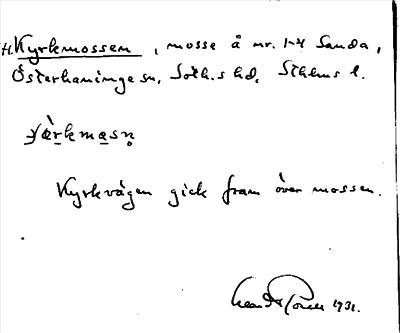 H. Kyrkmossen, mosse å nr. 1-4 Sanda,
Österhaninge sn, Soth.s hd, Sthlms l.
Kyrkvägen gick fram över mossen.
1931.